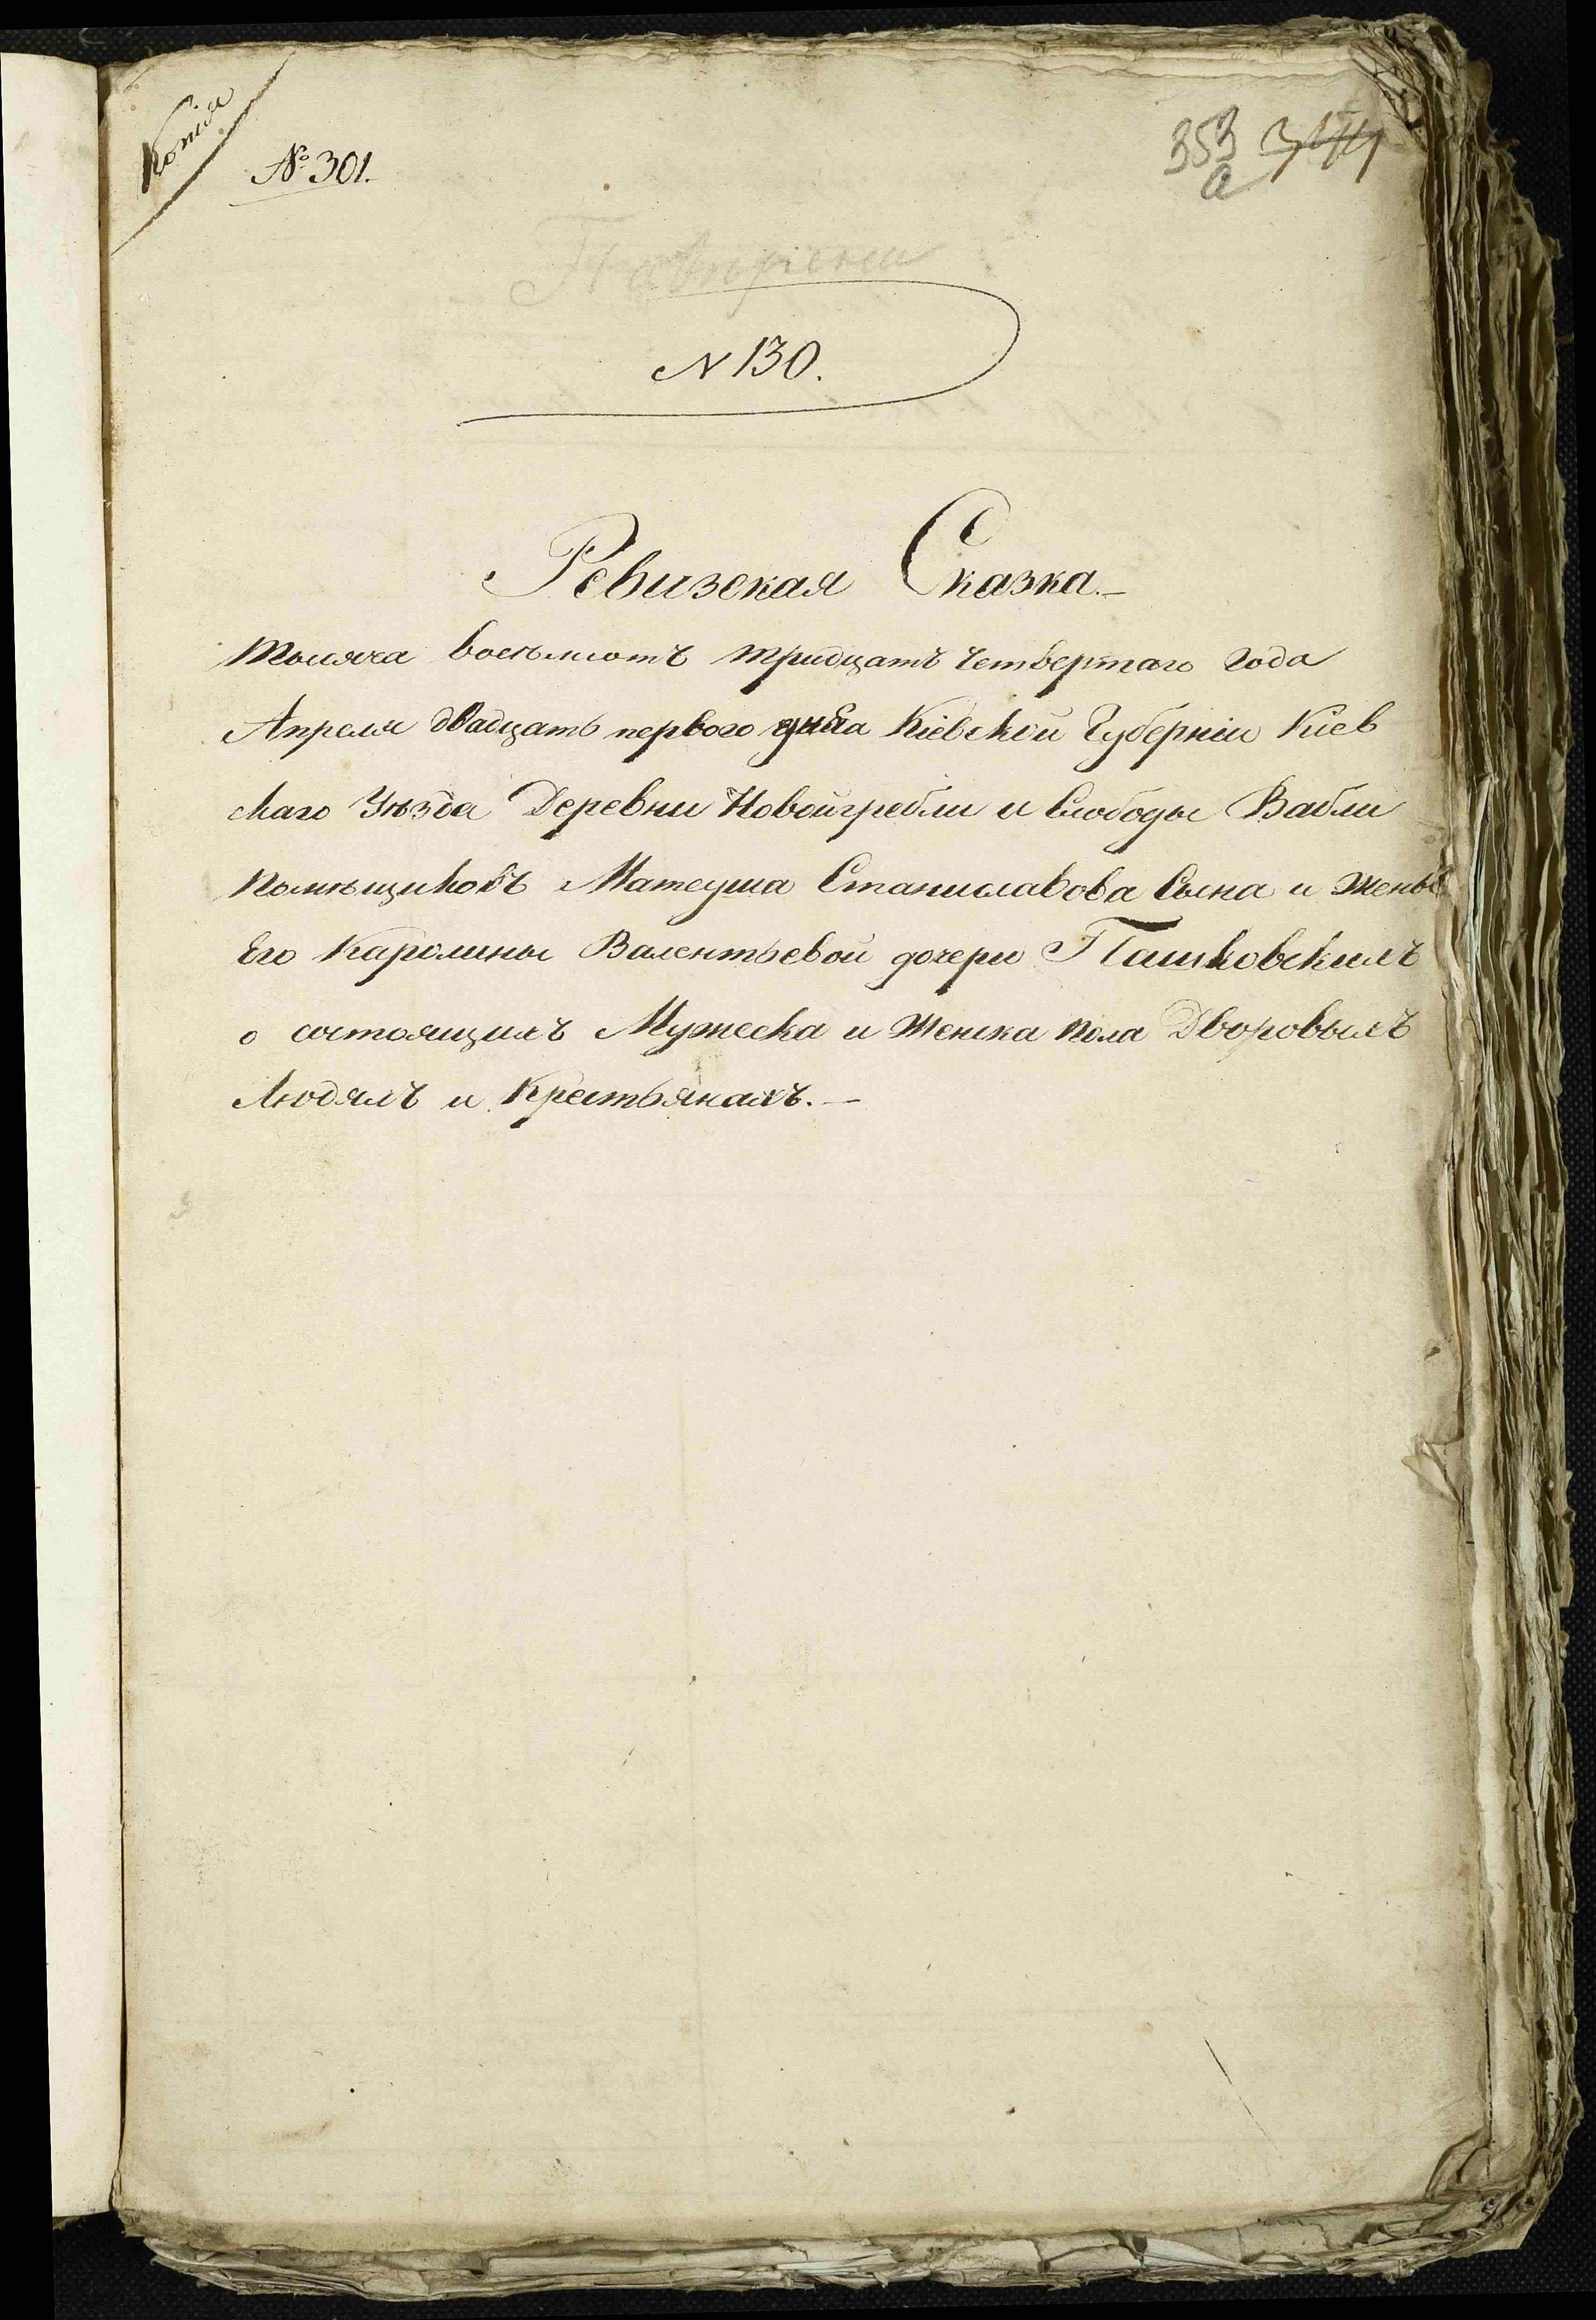 Копія
№ 301.
353
а
N 130.
Ревизская Сказка.—
тысяча восемьсотъ тридцать четвертаго года
Апреля двадцать первого дня Кіевской Губерніи Кіев
скаго Уѣзда Деревни Новойгребли и Слободы Вабли
помѣщиковъ Матеуша Станиславова Сына и жены
Его Каролины Валентьевой дочери Пашковскихъ
о состоящихъ Мужеска и Женска пола Дворовыхъ
Людяхъ и Крестьянахъ.—